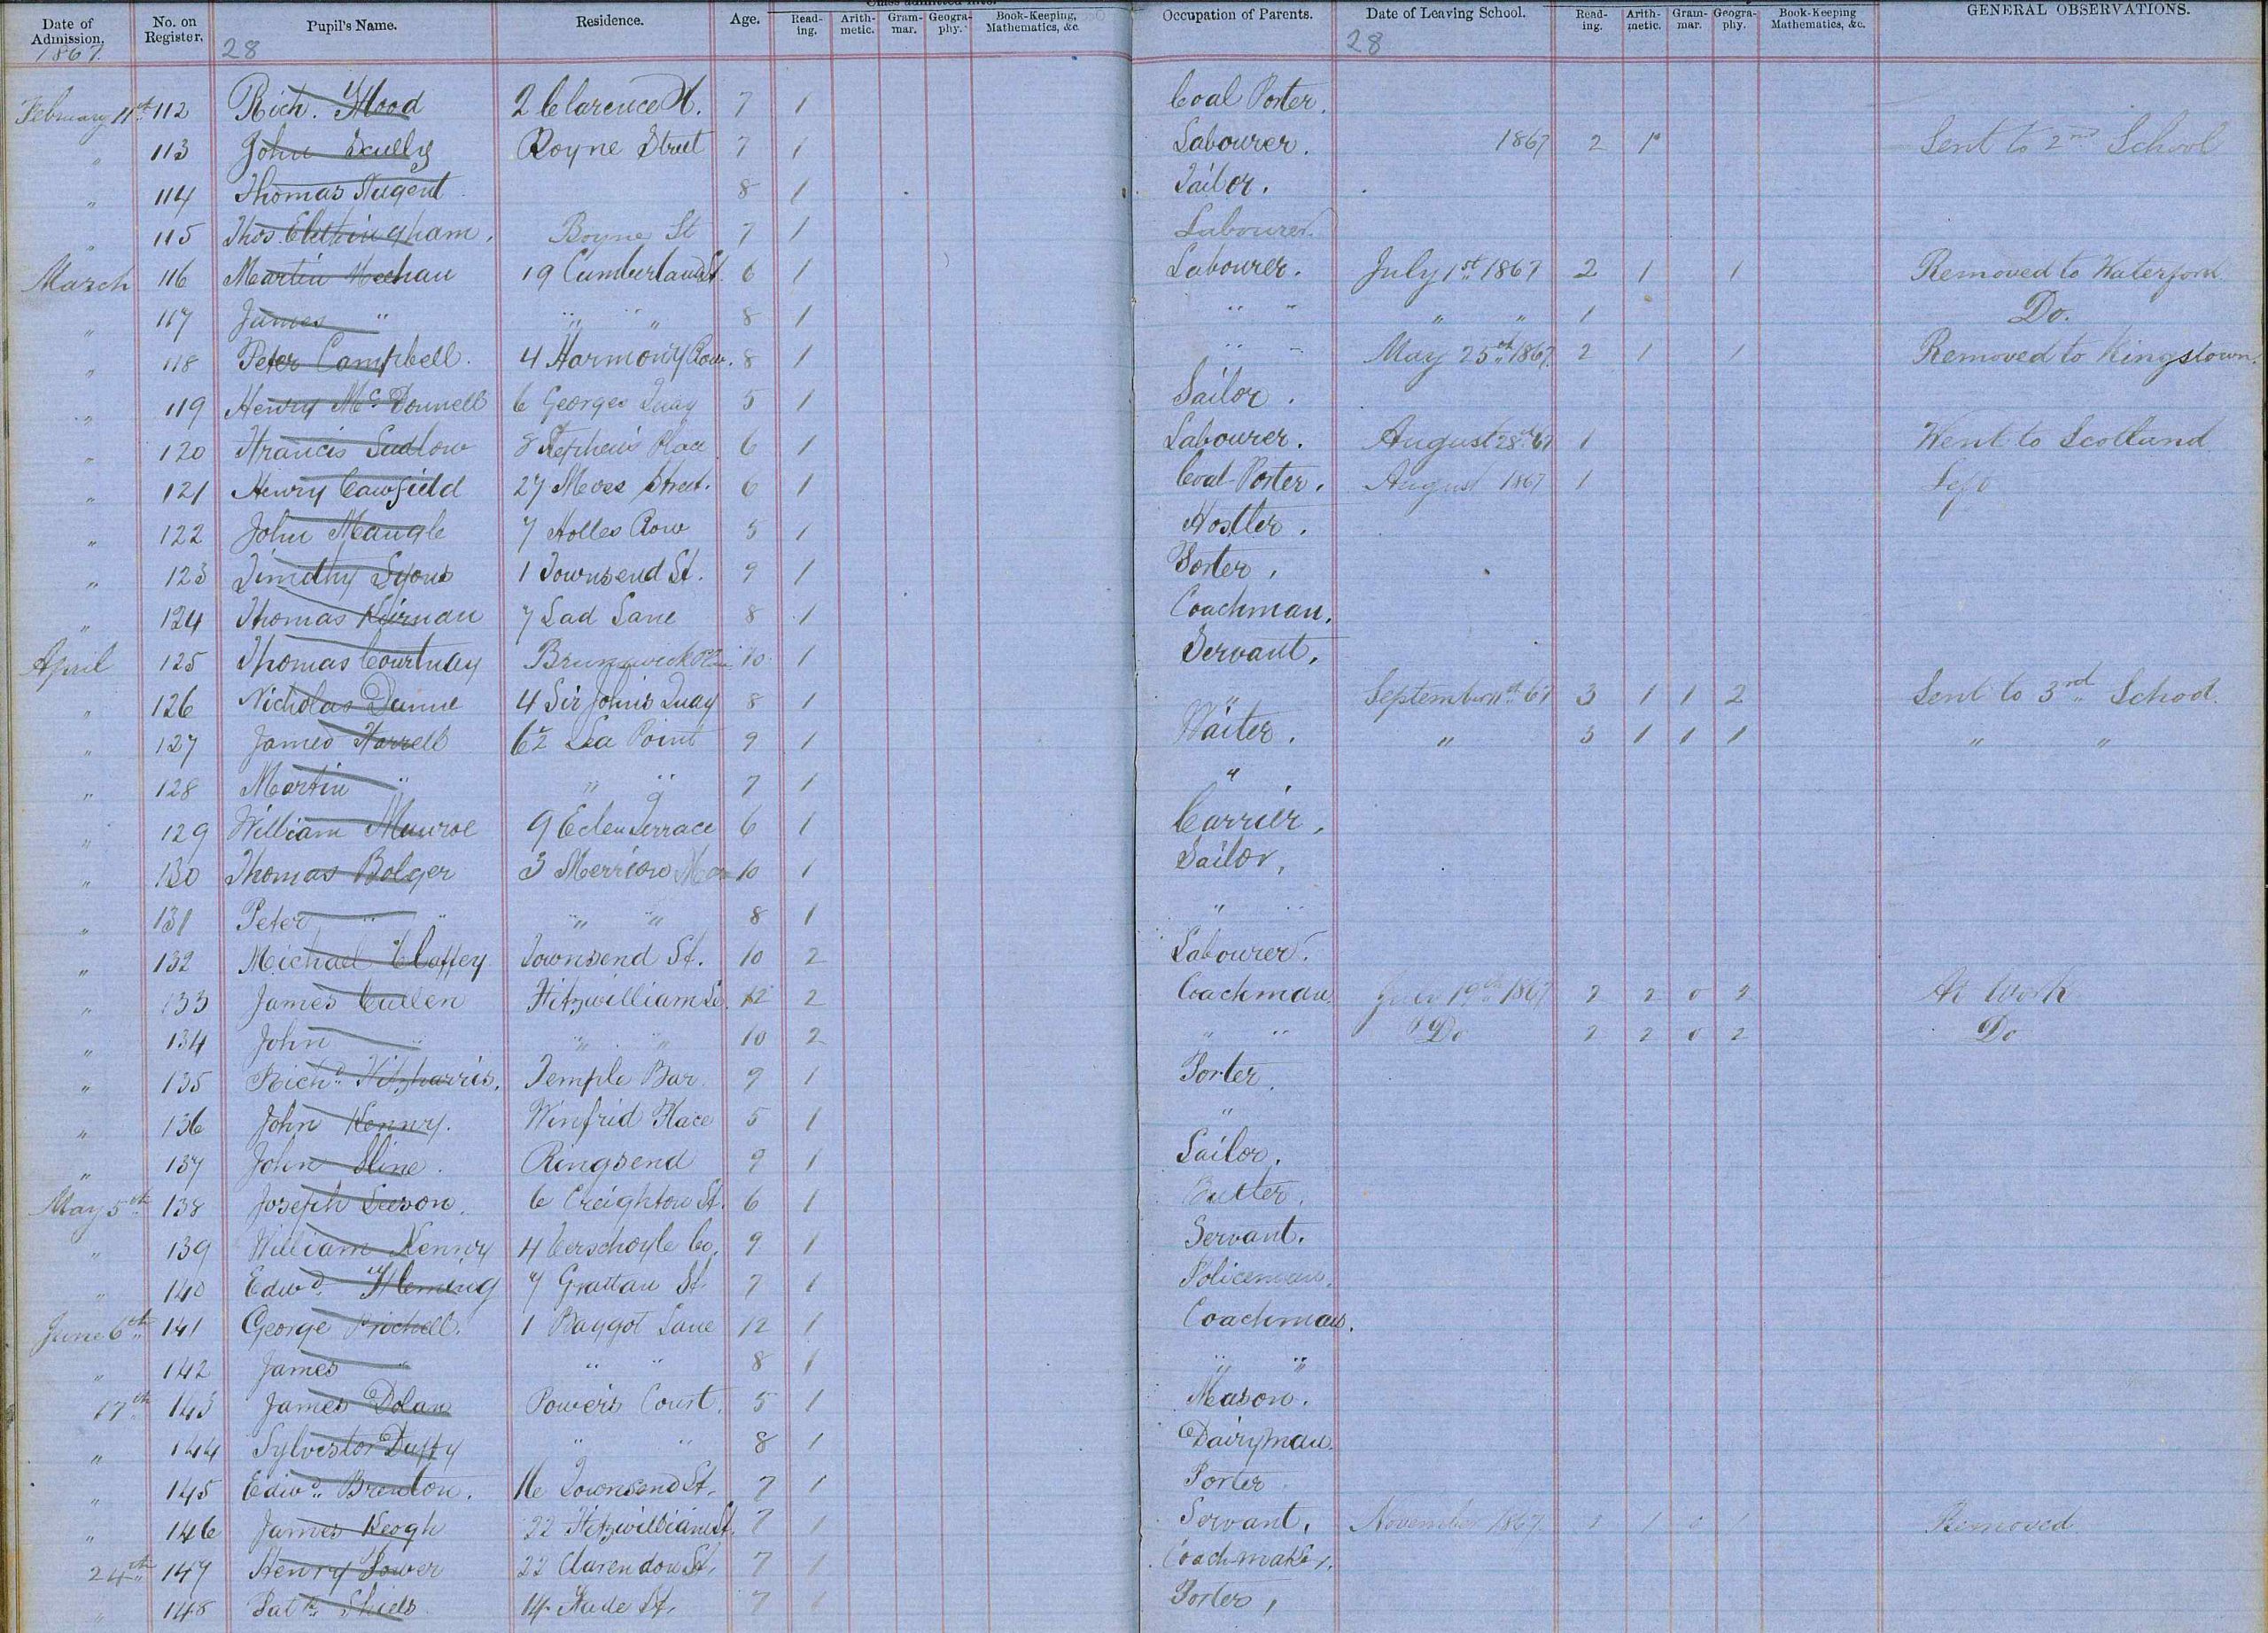 Date of Admission. No. on Register. Pupil's Name. Residence. Age. Read-ing. Arith-metic. Gram-mar. Geogra-phy. Book-Keeping, Mathematics, &c. Occupation of Parents. Date of Leaving School. Read-ing. Arith-metic. Gram-mar. Geogra-phy. Book-Keeping Mathematics, &c. GENERAL OBSERVATIONS.
1867. 28 28
February 11th 112 Rich. Flood 2 Clarence St. 7 1 Coal Porter.
" 113 John Scully Boyne Street 7 1 Labourer. 1867 2 1 Sent to 2nd School
" 114 Thomas Nugent 8 1 Tailor.
" 115 Thos. Boyne St 7 1 Labourer.
March 116 Martin Meehan 19 Cumberland St. 6 1 Labourer. July 1st 1867 2 1 1 Removed to Waterford
" 117 James " " " " 8 1 " " " " 1 Do.
" 118 Peter Campbell. 4 Harmony Row. 8 1 " " May 25th 1867. 2 1 1 Removed to Kingstown.
" 119 Henry McDonnell 6 Georges Quay 5 1 Sailor.
" 120 Francis Sudlow 8 Stephen's Place 6 1 Labourer. August 28th 67 1 Went to Scotland
" 121 Henry Cawfield 27 Moss Street. 6 1 Coal-Porter. August 1867 1 Left
" 122 John Mangle 7 Holles Row 5 1 Hostler.
" 123 Timothy Lyons 1 Townsend St. 9 1 Porter.
" 124 Thomas Kiernan 7 Lad Lane 8 1 Coachman.
April 125 Thomas Courtnay Brunswick 10 1 Servant.
" 126 Nicholas Dunne 4 Sir John's Quay 8 1 " September 11th 67 3 1 1 2 Sent to 3rd School.
" 127 James Farrell 62 Sea Point 9 1 Waiter. " 3 1 1 1 " "
" 128 Martin " " " 7 1 "
" 129 William Munroe 9 Eden Terrace 6 1 Carrier.
" 130 Thomas Bolger 3 Merrion 10 1 Sailor.
" 131 Peter " " " " 8 1 " "
" 132 Michael Claffey Townsend St. 10 2 Labourer.
" 133 James Cullen Fitzwilliam 12 2 Coachman. July 19th 1867 2 2 0 2 At Work
" 134 John " " " 10 2 " " Do 2 2 0 2 Do
" 135 Richd. Fitzharris. Temple Bar 9 1 Porter.
" 136 John Kenny. Winfrid Place 5 1 "
" 137 John Sline. Ringsend 9 1 Sailor.
May 5th 138 Joseph Leeson. 6 Creighton St. 6 1 Butler.
" 139 William Kenny 4 Verschoyle Co. 9 1 Servant.
" 140 Edwd. Fleming 7 Grattan St 7 1 Policeman.
June 6th 141 George Prichell. 1 Baggot Lane 12 1 Coachman.
" 142 James " " " 8 1 " "
17th 143 James Dolan Power's Court. 5 1 Mason.
" 144 Sylvester Duffy " " 8 1 Dairyman.
" 145 Edwd. Brenton. 16 Townsend St. 7 1 Porter
" 146 James Keogh 22 Fitzwilliam St. 7 1 Servant. November 1867 1 1 Removed
24th 147 Henry Power 22 Clarendon St. 7 1 Coachmaker.
" 148 Patk. Shiels 14 St. 7 1 Porter.